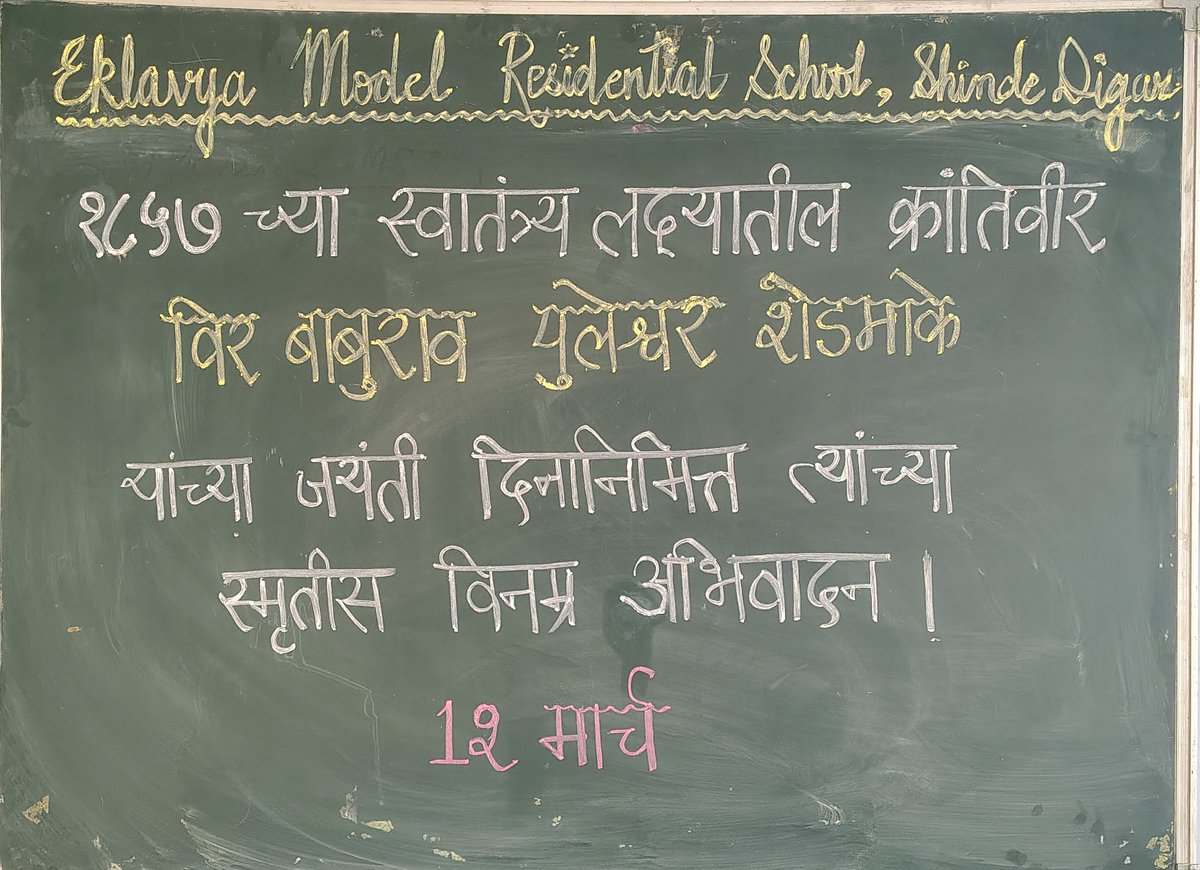 Eklavya Model Residential School, Shinde Digar
१८५७ च्या स्वातंत्र्य लढ्यातील क्रांतिवीर
विर बाबुराव पुलेश्वर शेडमाके
यांच्या जयंती दिनानिमित्त त्यांच्या
स्मृतीस विनम्र अभिवादन ।
1२ मार्च